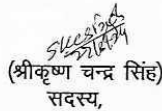 (श्रीकृष्ण चन्द्र सिंह)
सदस्य,